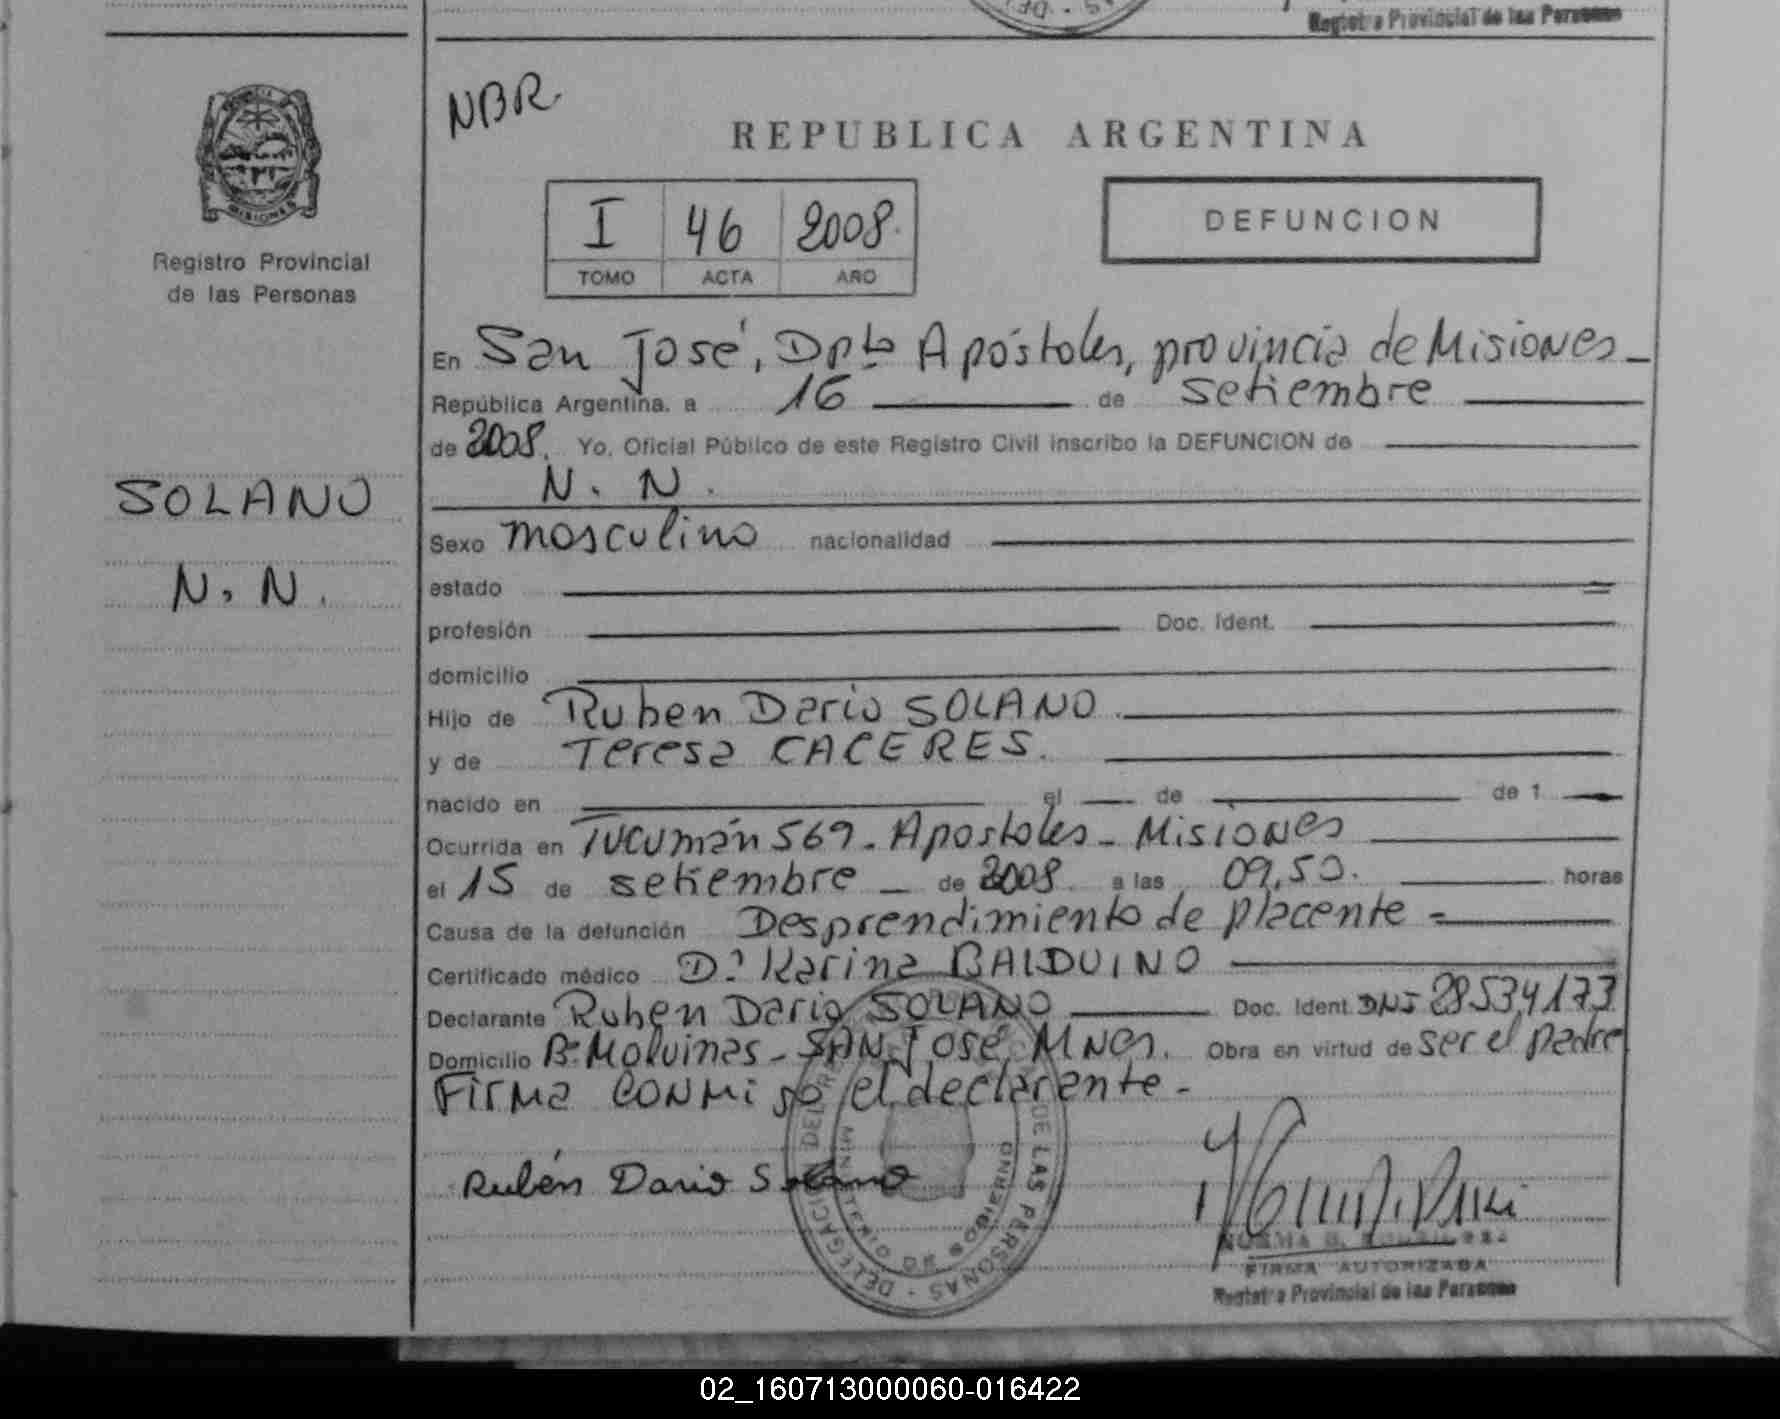 Registro Provincial de las Personas
NBR.
REPUBLICA ARGENTINA
MISIONES
Registro Provincial
de las Personas
I 46 2008.
TOMO ACTA AÑO
DEFUNCION
En San José, Dpto Apóstoles, provincia de Misiones
República Argentina, a 16 de setiembre
de 2008. Yo, Oficial Público de este Registro Civil inscribo la DEFUNCION de
N. N.
SOLANO
N. N.
Sexo masculino nacionalidad
estado
profesión Doc. Ident.
domicilio
Hijo de Ruben Dario SOLANO.
y de Teresa CACERES.
nacido en el de de 1
Ocurrida en Tucumán 569 - Apostoles - Misiones
el 15 de setiembre de 2008 a las 09,50. horas
Causa de la defunción Desprendimiento de placenta
Certificado médico Dra Karina BALDUINO
Declarante Ruben Dario SOLANO Doc. Ident. DNI 28534173
Domicilio Bº Malvinas - SAN José, Mnes. Obra en virtud de ser el padre
Firma conmigo el declarante -
Rubén Dario Solano
DELEGACION DEL REGISTRO DE LAS PERSONAS
MINISTERIO DE GOBIERNO
NORMA B.
FIRMA AUTORIZADA
Registro Provincial de las Personas
02_160713000060-016422